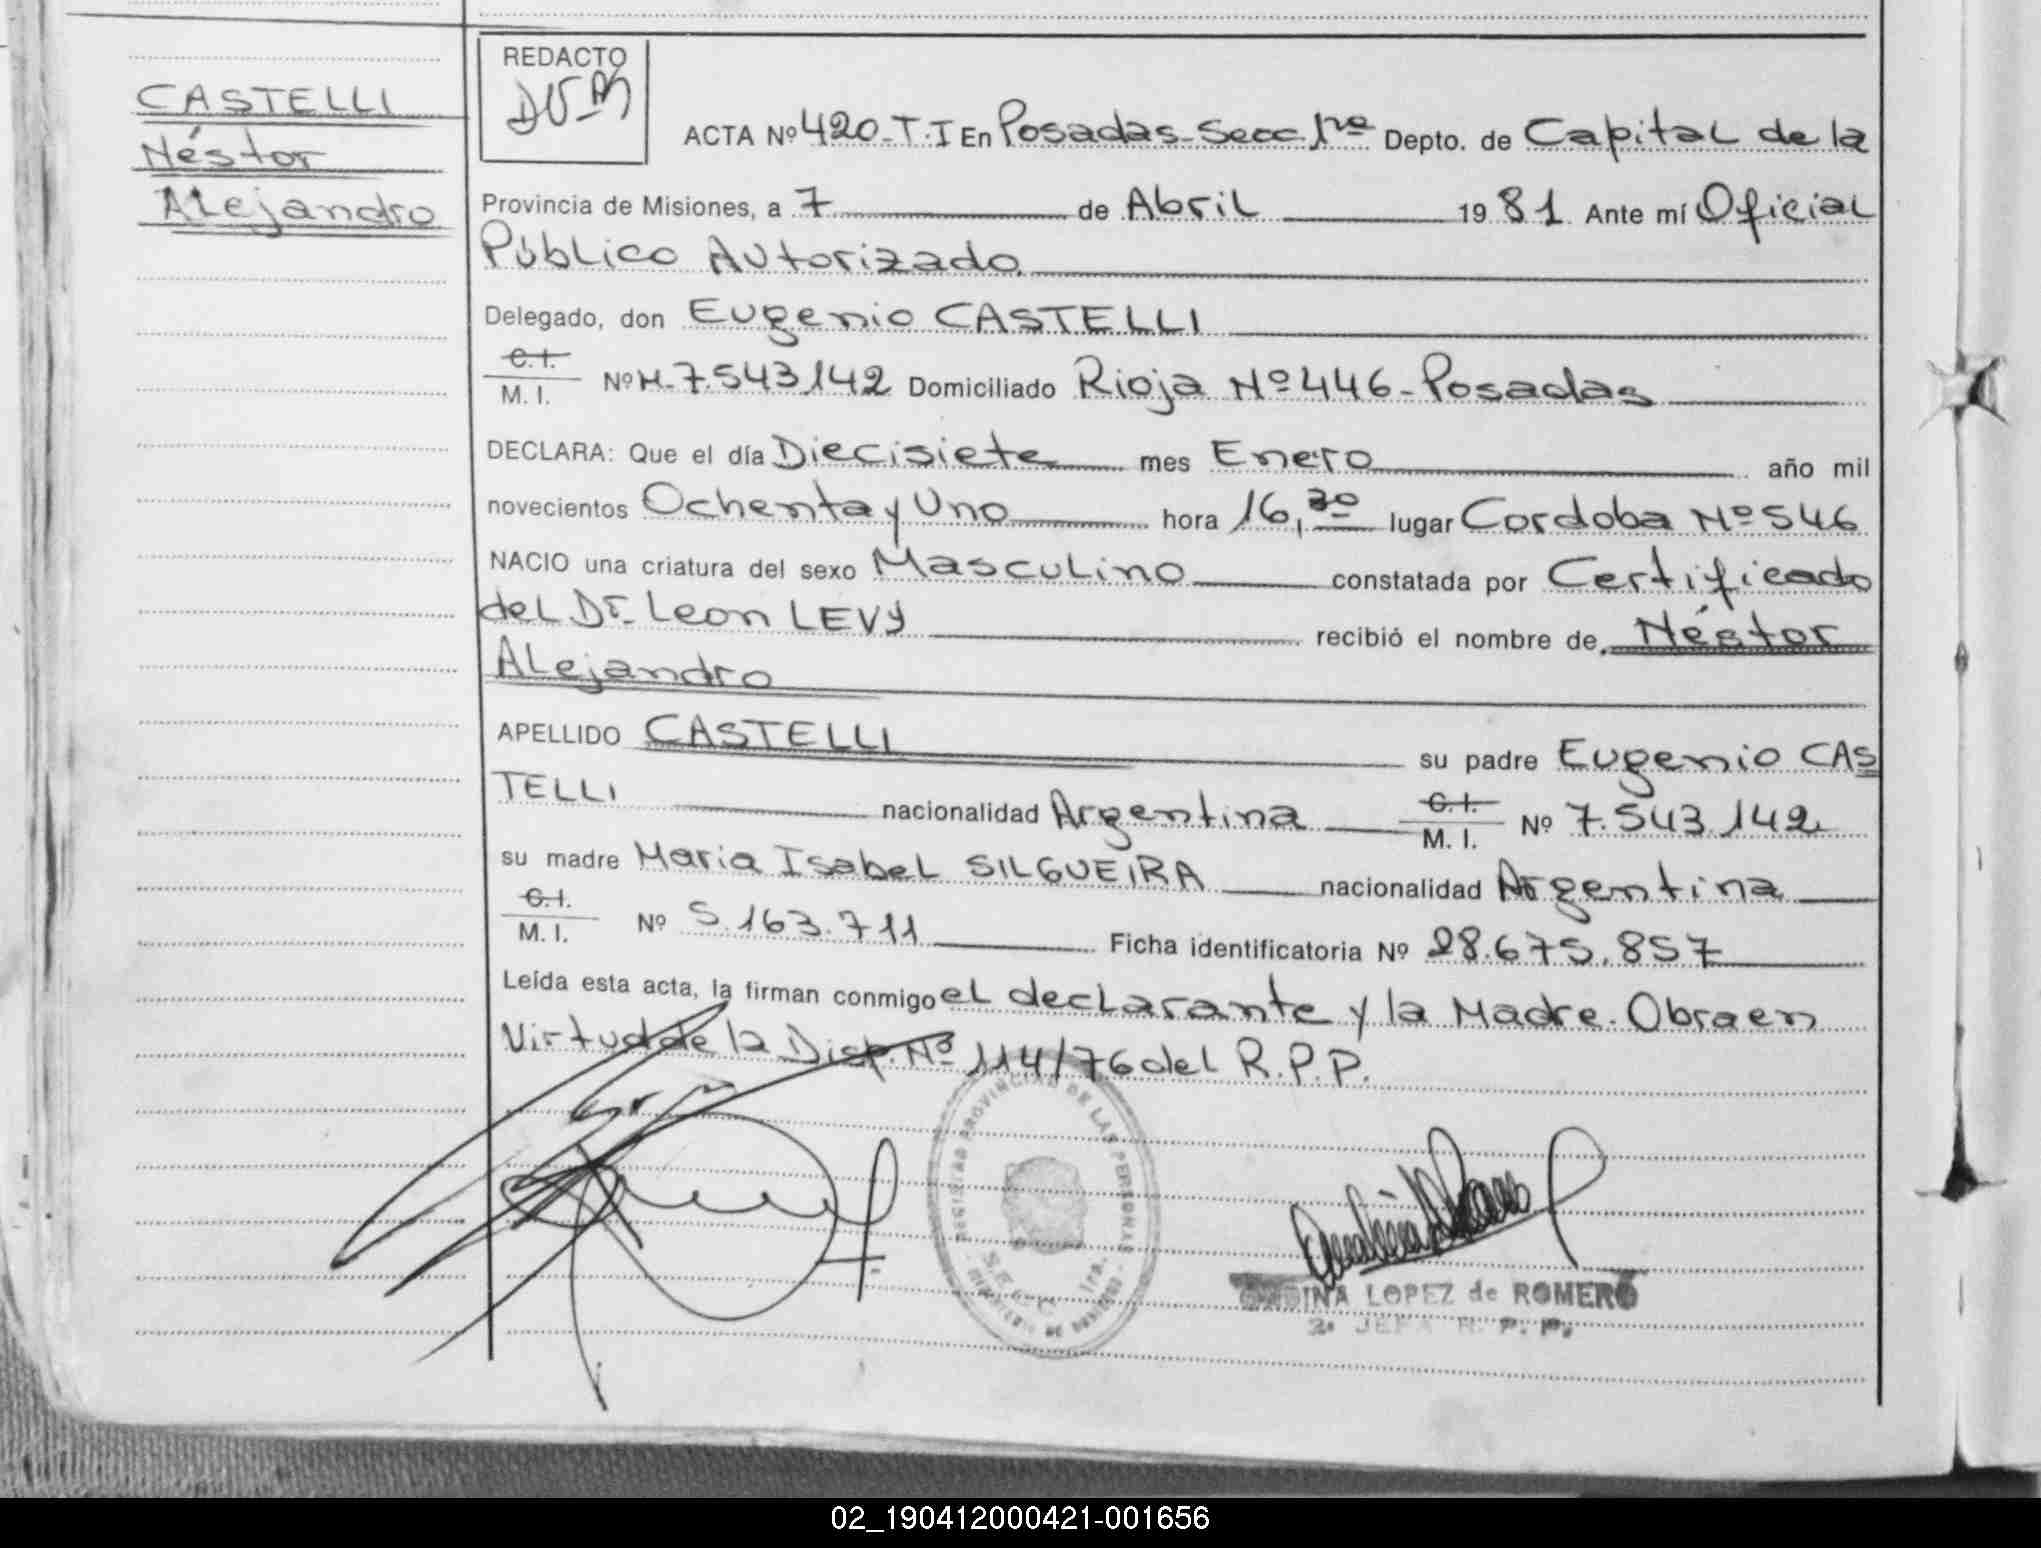 CASTELLI
Néstor
Alejandro
REDACTO
ACTA Nº 420-T.I En Posadas-Secc. 1ra Depto. de Capital de la
Provincia de Misiones, a 7 de Abril 1981 Ante mí Oficial
Público Autorizado
Delegado, don Eugenio CASTELLI
C.I.
M. I. Nº M-7.543.142 Domiciliado Rioja Nº 446-Posadas
DECLARA: Que el día Diecisiete mes Enero año mil
novecientos Ochenta y Uno hora 16,30 lugar Cordoba Nº 546
NACIO una criatura del sexo Masculino constatada por Certificado
del Dr. Leon LEVY recibió el nombre de Néstor
Alejandro
APELLIDO CASTELLI su padre Eugenio CAS
TELLI nacionalidad Argentina C.I.
M. I. Nº 7.543.142
su madre Maria Isabel SILGUEIRA nacionalidad Argentina
C.I.
M. I. Nº 5.163.711 Ficha identificatoria Nº 28.675.857
Leída esta acta, la firman conmigo el declarante y la Madre. Obra en
Virtud de la Disp. Nº 114/76 del R.P.P.
REGISTRO PROVINCIAL DE LAS PERSONAS
SECC. 1ra.
LOPEZ de ROMERO
2ª JEFA R. P. P.
02_190412000421-001656